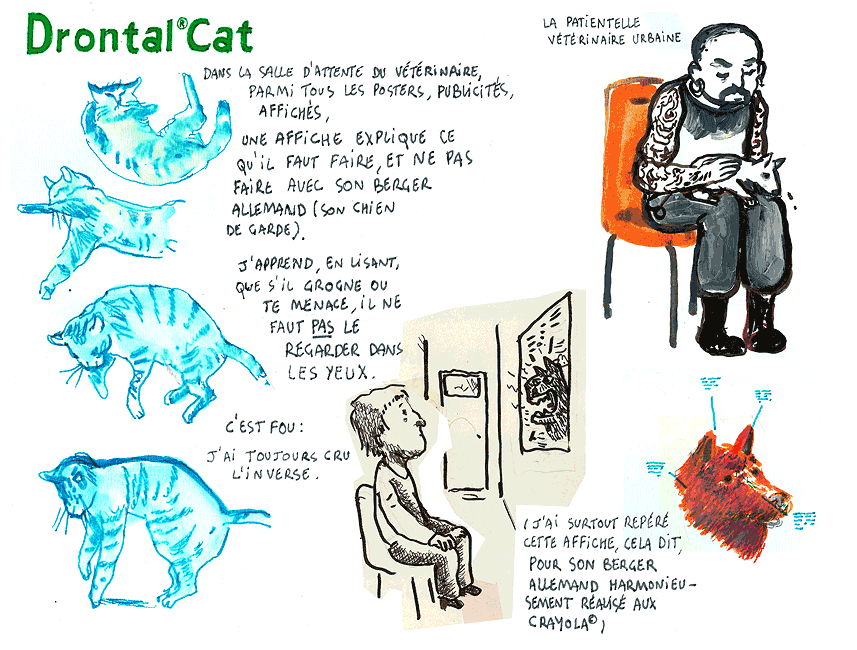 Drontal®Cat
DANS LA SALLE D'ATTENTE DU VÉTÉRINAIRE,
PARMI TOUS LES POSTERS, PUBLICITÉS,
AFFICHÉS,
UNE AFFICHE EXPLIQUE CE
QU'IL FAUT FAIRE, ET NE PAS
FAIRE AVEC SON BERGER
ALLEMAND (SON CHIEN
DE GARDE).
J'APPREND, EN LISANT,
QUE S'IL GROGNE OU
TE MENACE, IL NE
FAUT PAS LE
REGARDER DANS
LES YEUX.
C'EST FOU:
J'AI TOUJOURS CRU
L'INVERSE.
LA PATIENTELLE
VÉTÉRINAIRE URBAINE
(J'AI SURTOUT REPÉRÉ
CETTE AFFICHE, CELA DIT,
POUR SON BERGER
ALLEMAND HARMONIEU-
SEMENT RÉALISÉ AUX
CRAYOLA©)